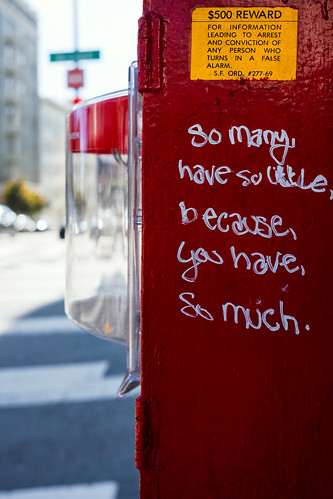 $500 REWARD
FOR INFORMATION
LEADING TO ARREST
AND CONVICTION OF
ANY PERSON WHO
TURNS IN A FALSE
ALARM.
S.F. ORD. #277-69
So many,
have so little,
because,
you have,
So much.